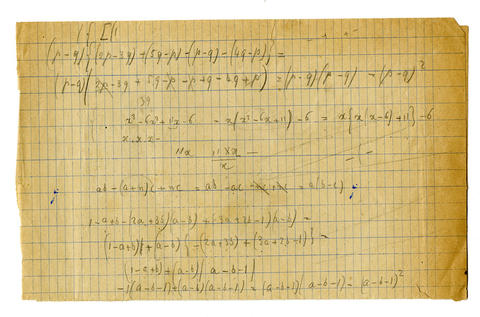 (p-q){(2p-3q)+(5q-p)-(p-q)-(4q-p)}=
(p-q)(2p-3q+5q-p-p+q-4q+p)=(p-q)(p-q)=(p-q)²
3q
x³-6x²+11x-6 = x(x²-6x+11)-6 = x{x(x-6)+11}-6
x.x.x-
11x
ab-(a+n)c+nc = ab-ac = a(b-c)
1-a+b-(2a+3b)(a-b)+(3a+2b-1)(a-b)=
(1-a+b)+(a-b){-(2a+3b)+(3a+2b-1)}=
(1-a+b)+(a-b)(a-b-1)
-1(a-b-1)+(a-b)(a-b-1)=(a-b-1)(a-b-1)=(a-b-1)²